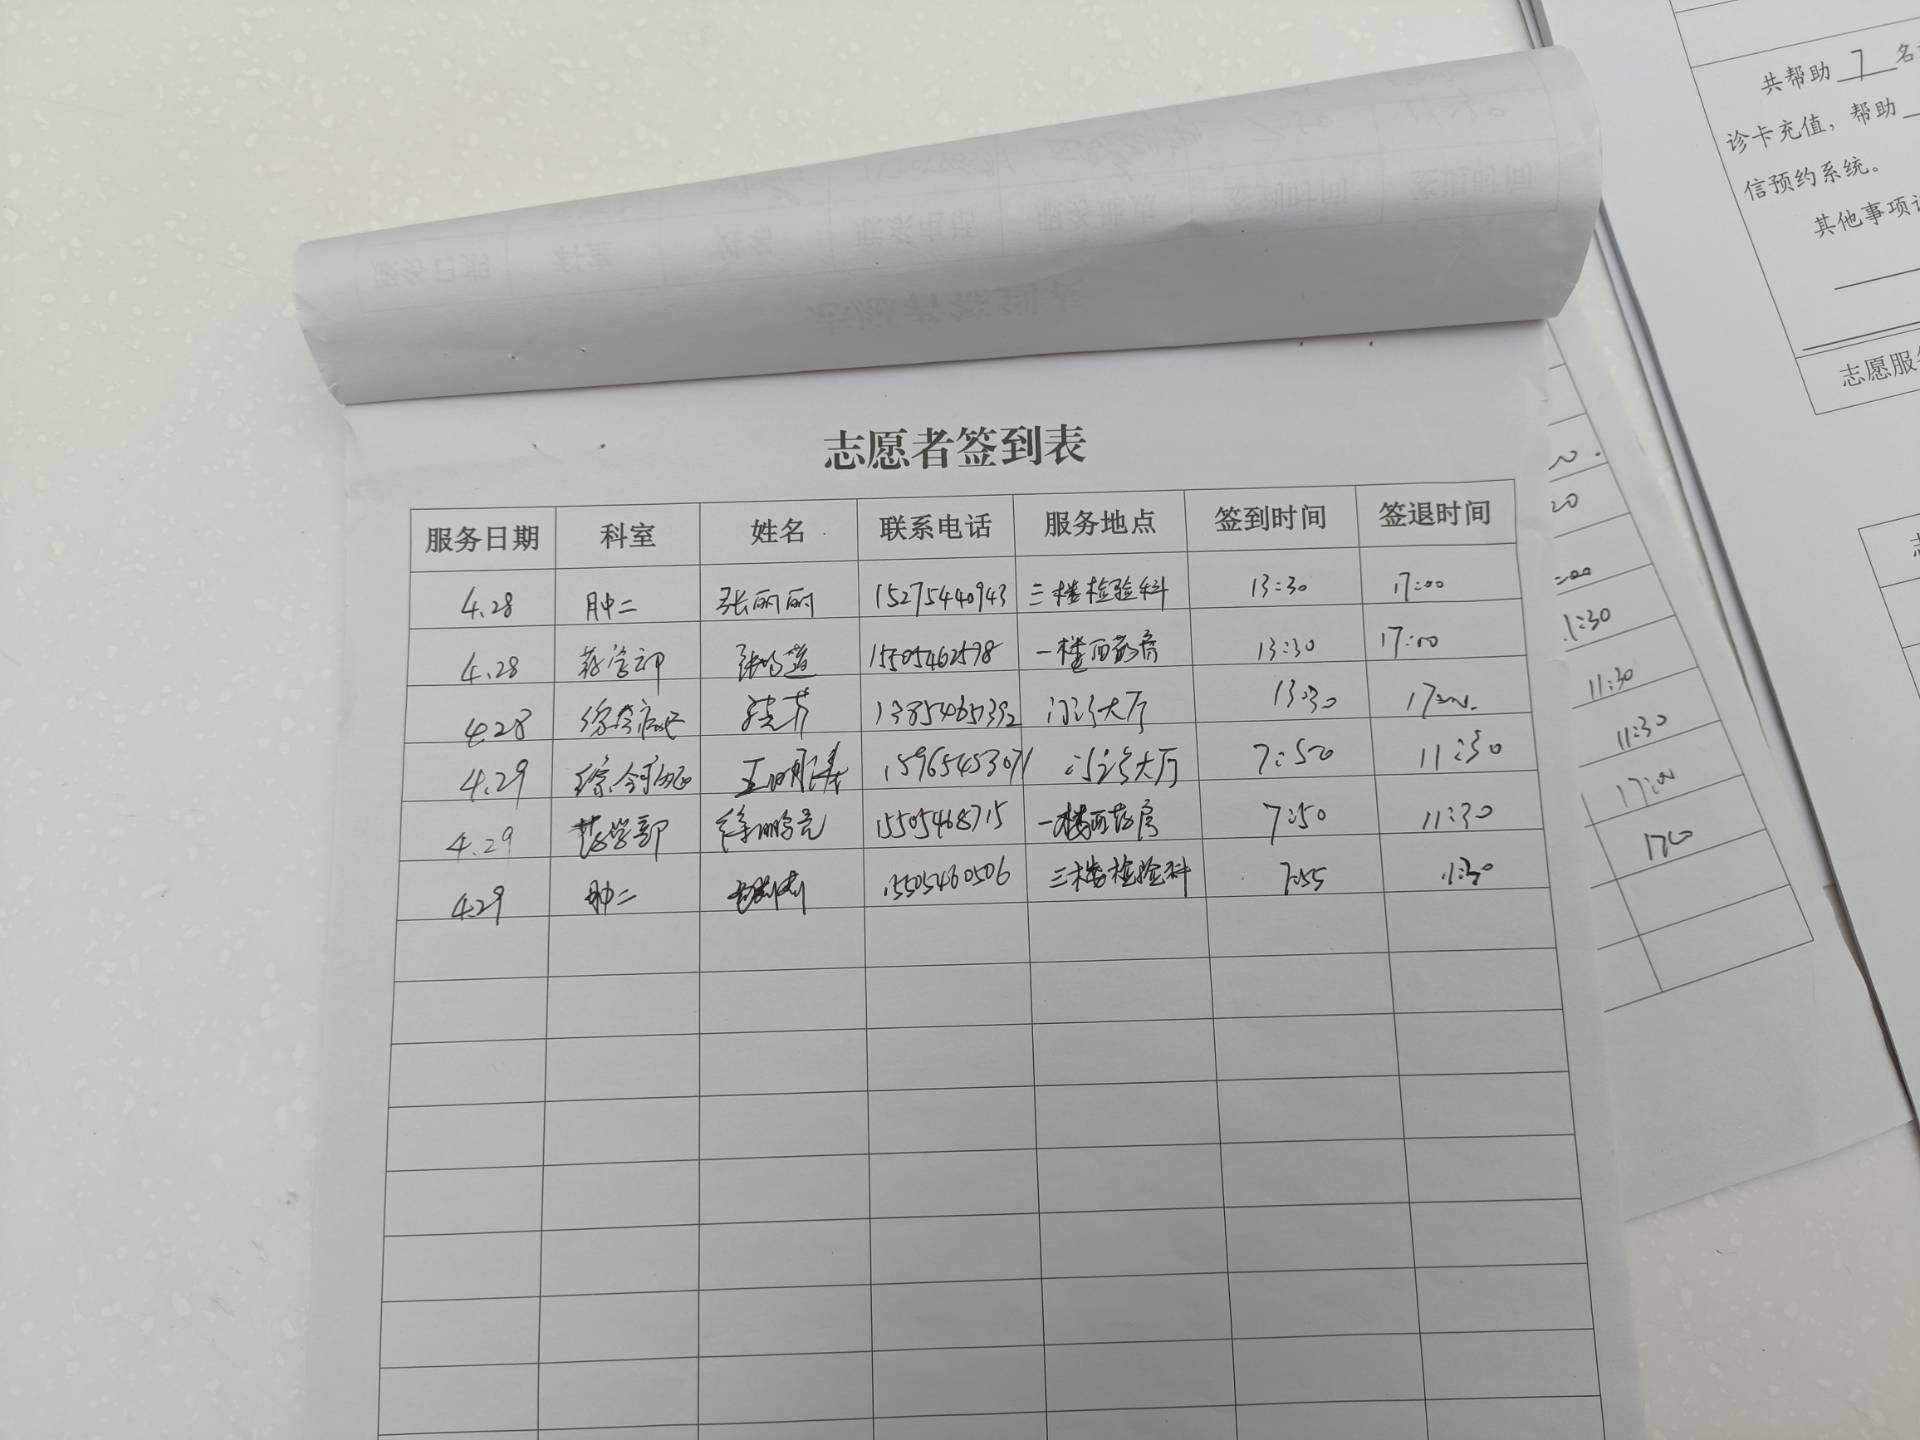 志愿者签到表
服务日期 科室 姓名 联系电话 服务地点 签到时间 签退时间
4.28 肿二 张丽丽 15275440943 三楼检验科 13:30 17:00
4.28 药学部 15505462578 一楼西药房 13:30 17:00
4.28 综合病区 门诊大厅 13:30
4.29 综合病区 15965453071 门诊大厅 7:50 11:30
4.29 药学部 徐鹏亮 15505468715 一楼西药房 7:50 11:30
4.29 肿二 15505460506 三楼检验科 7:55
共帮助 7 名
诊卡充值，帮助
信预约系统。
其他事项
志愿服
1:30
11:30
11:30
17:00